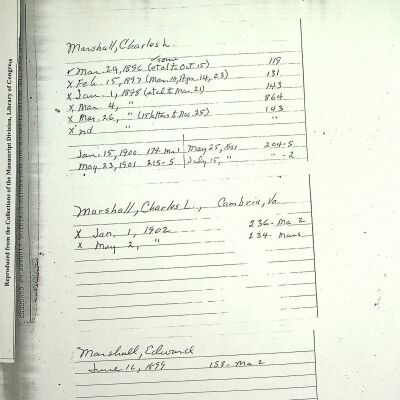 Reproduced from the Collections of the Manuscript Division, Library of Congress
Marshall, Charles L.
some
✓ Mar. 29, 1896 (et al to Oct 15) 119
X Feb. 15, 1897 (Mar. 10, Apr. 14, 23) 131
X Jan. 1, 1898 (et al to Mar. 21) 143
X Mar. 4, " 864
X Mar. 26, " (15 letters to Nov. 25) 143
X nd "
Jan. 15, 1900 174- May 25, 1901 204-5
May 23, 1901 215-5 July 15, " " -2
Marshall, Charles L., Cambria, Va.
X Jan. 1, 1902 236- Ma 2
X May 2, " 234-
Marshall, Edward
June 16, 1899 158- Ma 2